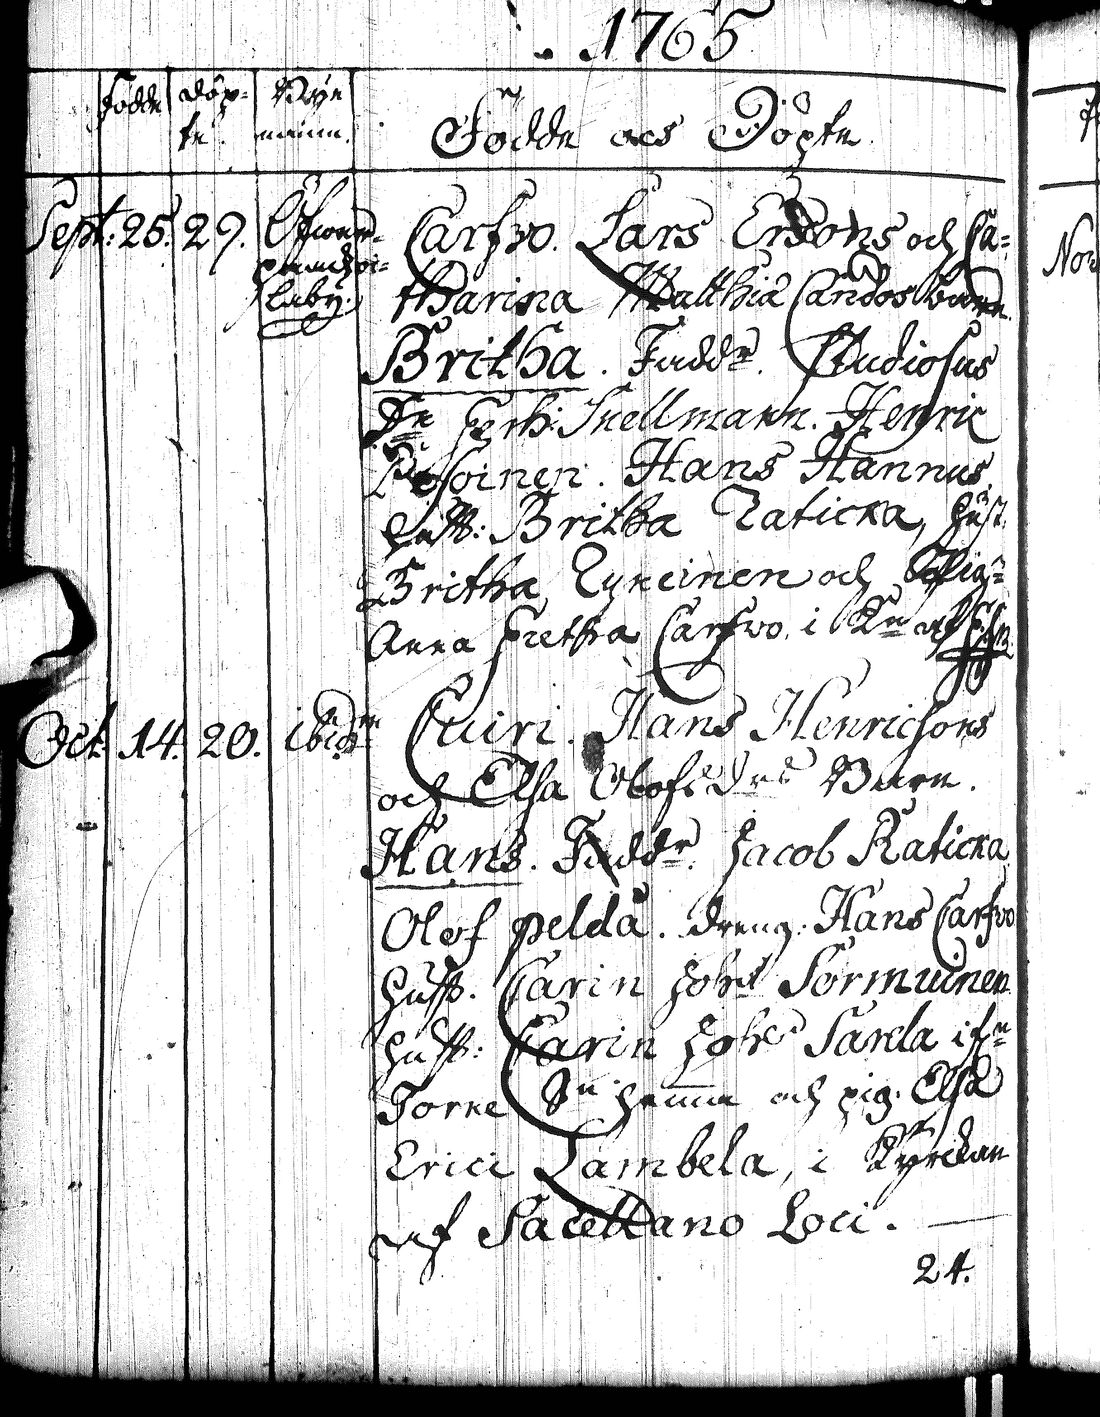 1765
Födde
döp-
te.
Byr
namn.
Födde och Döpte.
Sept: 25. 29.
laby.
Carfvo. Lars Ersons och Ca=
tharina Matthiæ Candos barn.
Britha. Faddr. Studiosus
Dn Joh: Snellmann. Henric
Posoinen. Hans Hannus.
Hust: Britha Raticka, Hust.
Britha Rykeinen och Pig=
Anna Gretha Carfvo. i Kn af
Oct. 14. 20. ibidm
Cuiri. Hans Henricsons
och Elsa Olofsdrs Barn.
Hans. Faddr. Jacob Raticka
Olof pelda. dreng. Hans Carfvo
Hust. Carin Johsd Sormuinen
Hust: Carin Johsd Sarela
Torne Sn hemm och pig. Elsa
Erici Lambela, i Kyrckan
af Sacellano Loci.
24.